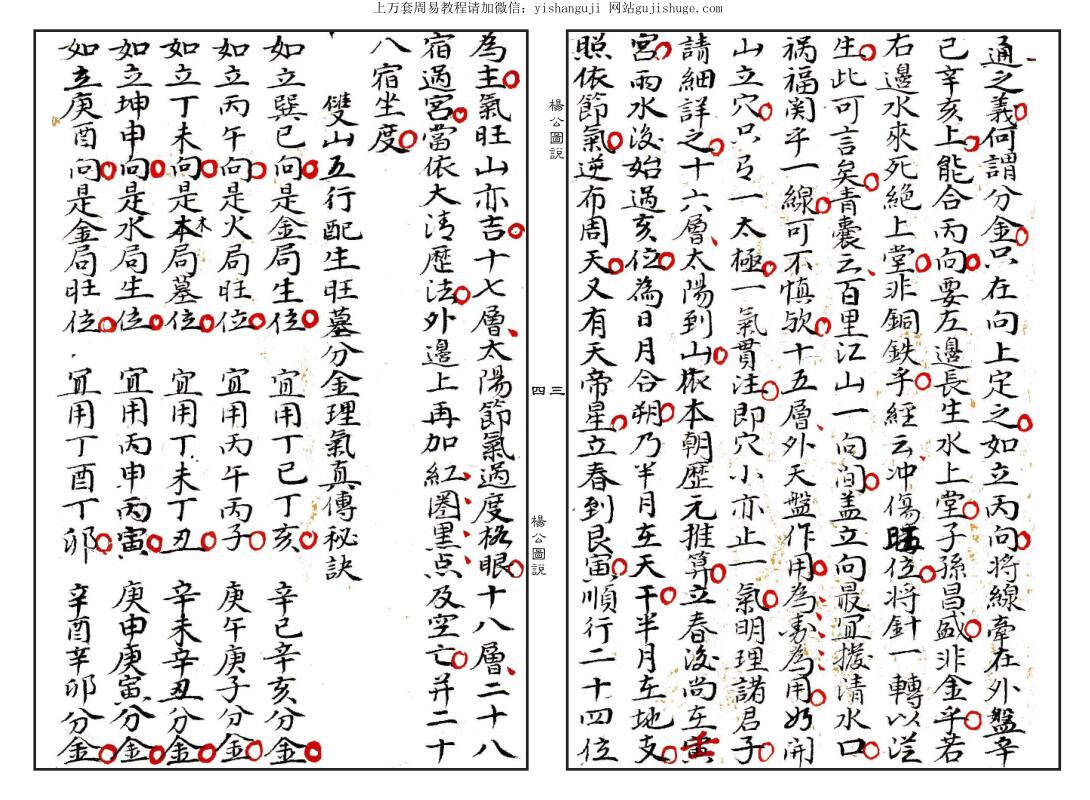 上万套周易教程请加微信：yishanguji 网站gujishuge.com
通之義何謂分金只在向上定之如立丙向將線牽在外盤辛
巳辛亥上能合丙向要左邊長生水上堂子孫昌盛非金乎若
右邊水來死絕上堂非銅鉄乎經云冲傷旺位將針一轉以從
生此可言矣青囊云百里江山一向间盖立向最宜撥清水口
祸福関乎一線可不慎欤十五層外天盤作用為寿為用如開
山立穴只一太極一氣貫注即穴小亦止一氣明理諸君子
請細詳之十六層太陽到山依本朝歷元推算立春後尚在寅
宮雨水後始過亥位為日月合朔乃半月在天干半月在地支
照依節氣逆布周天又有天帝星立春到艮寅順行二十四位
楊公圖說
三四
楊公圖說
為主氣旺山亦吉十七層太陽節氣過度格眼十八層二十八
宿過宮當依大清歷法外邊上再加紅圈黑点及空亡并二十
八宿坐度
雙山五行配生旺墓分金理氣真傳秘訣
如立巽巳向是金局生位 宜用丁巳丁亥 辛巳辛亥分金
如立丙午向是火局旺位 宜用丙午丙子 庚午庚子分金
如立丁未向是木局墓位 宜用丁未丁丑 辛未辛丑分金
如立坤申向是水局生位 宜用丙申丙寅 庚申庚寅分金
如立庚酉向是金局旺位 宜用丁酉丁卯 辛酉辛卯分金